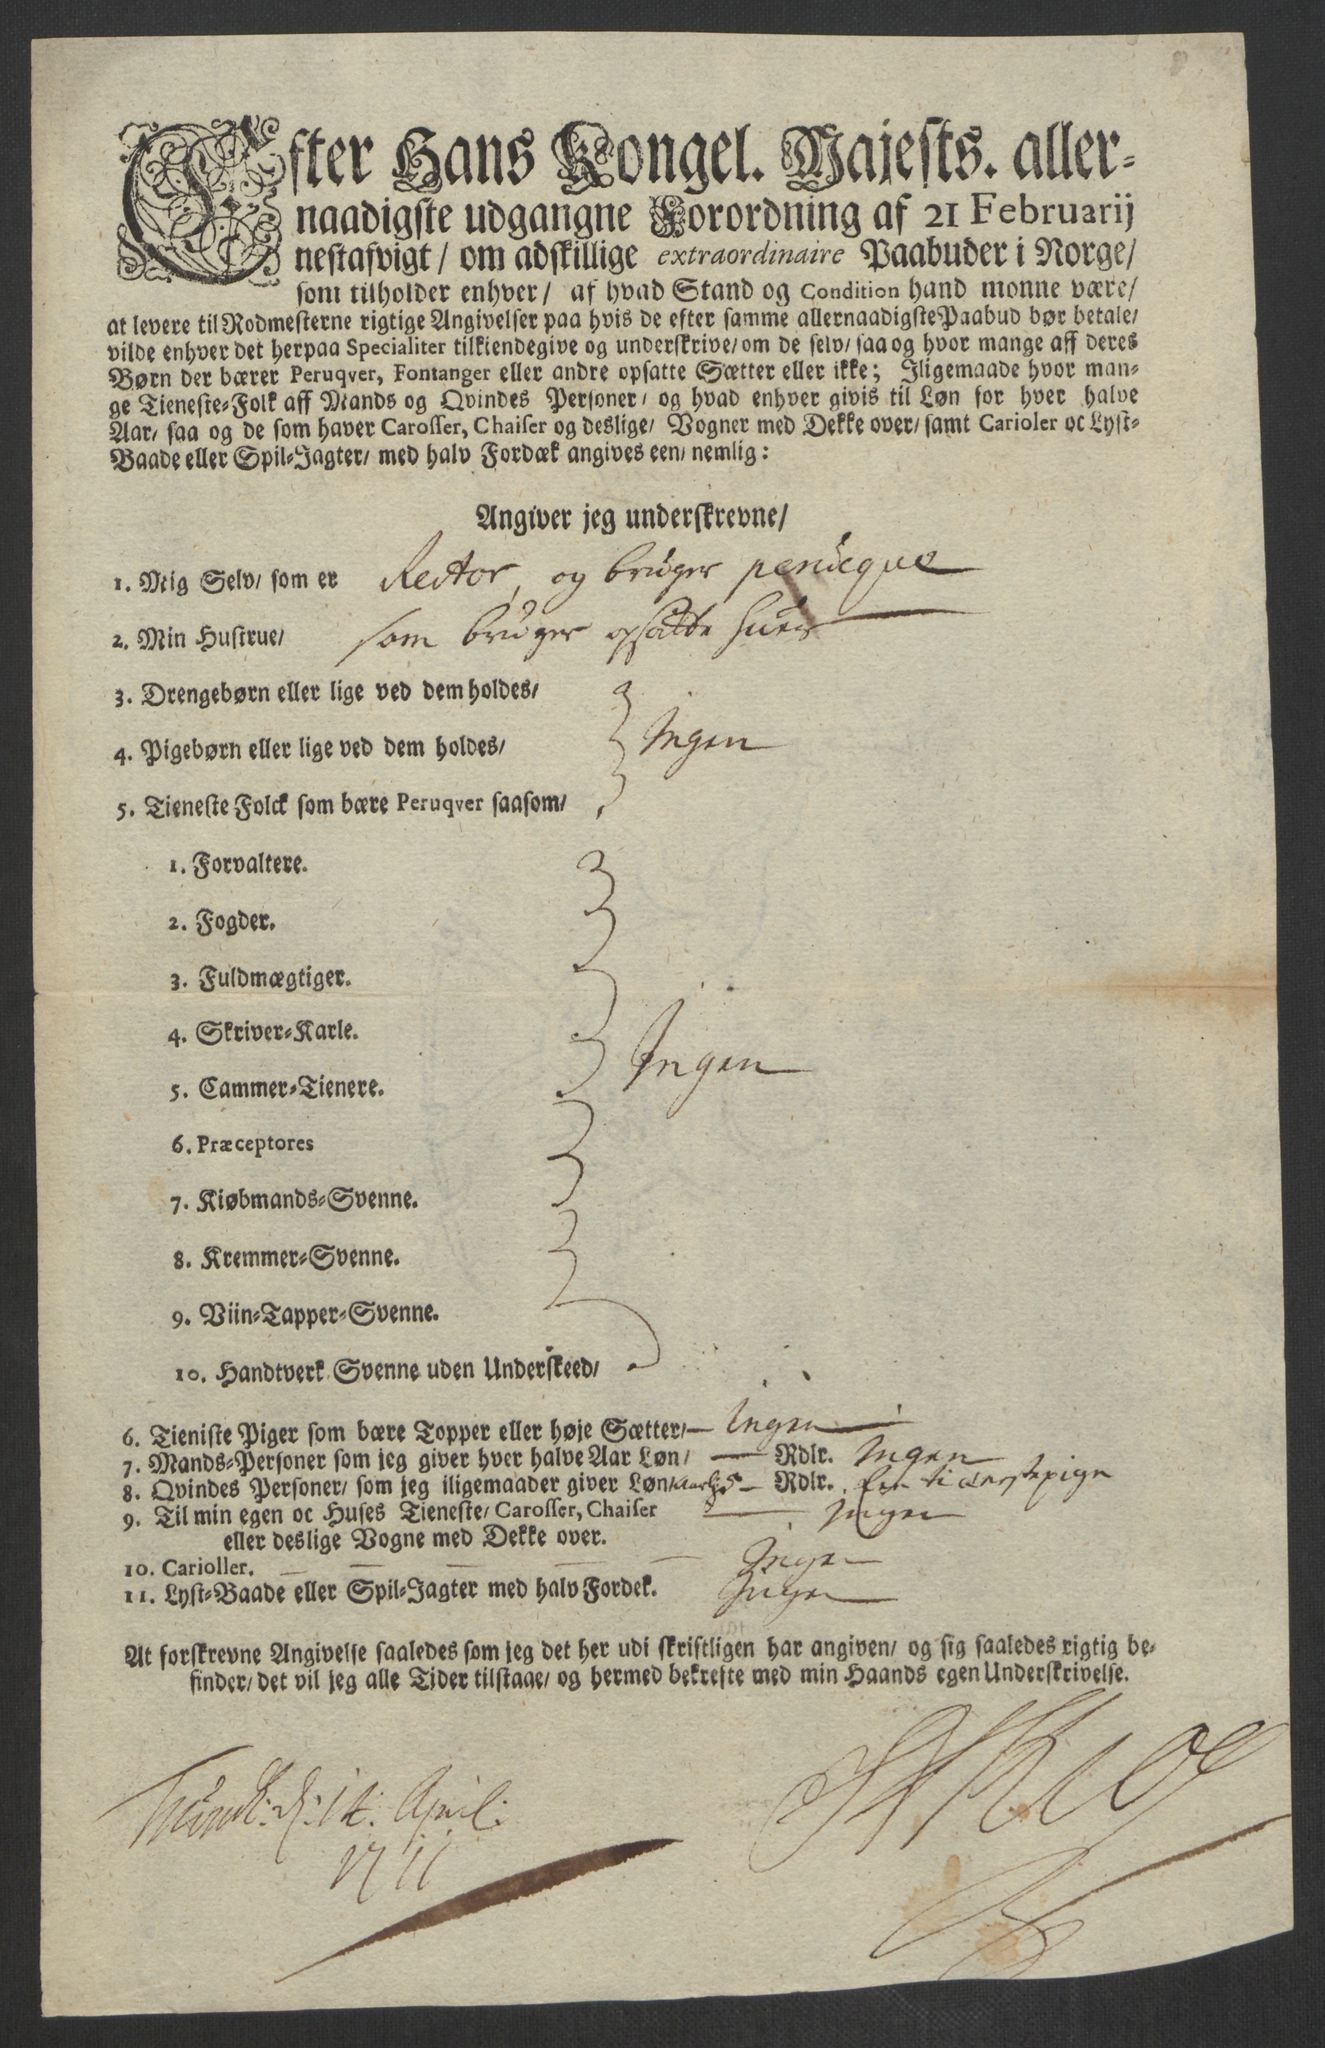 Efter Hans Kongel. Majests. aller-
naadigste udgangne Forordning af 21 Februarij
nestafvigt/ om adskillige extraordinaire Paabuder i Norge/
som tilholder enhver/ af hvad Stand og Condition hand monne være/
at levere til Rodmesterne rigtige Angivelser paa hvis de efter samme allernaadigste Paabud bør betale/
vilde enhver det herpaa Specialiter tilkiendegive og underskrive/ om de selv/ saa og hvor mange aff deres
Børn der bærer Peruqver, Fontanger eller andre opsatte Sætter eller ikke; Iligemaade hvor man-
ge Tieneste-Folk aff Mands og Qvindes Personer/ og hvad enhver givis til Løn for hver halve
Aar/ saa og de som haver Carosser, Chaiser og deslige/ Vogner med Dekke over/ samt Carioler oc Lyst-
Baade eller Spil-Jagter/ med halv Fordæk angives een/ nemlig:
Angiver jeg underskrevne/
1. Mig Selv/ som er Rector, og bruger perruque
2. Min Hustrue/ som bruger opsatte huer
3. Drengebørn eller lige ved dem holdes/
4. Pigebørn eller lige ved dem holdes/ Ingen
5. Tieneste Folck som bære Peruqver saasom/
1. Forvaltere.
2. Fogder.
3. Fuldmægtiger.
4. Skriver-Karle.
5. Cammer-Tienere. Ingen
6. Præceptores
7. Kiøbmands-Svenne.
8. Kremmer-Svenne.
9. Viin-Tapper-Svenne.
10. Handtverk Svenne uden Underskeed/
6. Tieniste Piger som bære Topper eller høje Sætter/ Ingen
7. Mands-Personer som jeg giver hver halve Aar Løn/ Rdlr. Ingen
8. Qvindes Personer/ som jeg iligemaader giver Løn/ Rdlr. Een tienistepige
9. Til min egen oc Huses Tieneste/ Carosser, Chaiser Ingen
eller deslige Vogne med Dekke over.
10. Carioller. Ingen
11. Lyst-Baade eller Spil-Jagter med halv Fordek. Ingen
At forskrevne Angivelse saaledes som jeg det her udi skriftligen har angiven/ og sig saaledes rigtig be-
finder/ det vil jeg alle Tider tilstaae/ og hermed bekrefte med min Haands egen Underskrivelse.
14. April.
1711